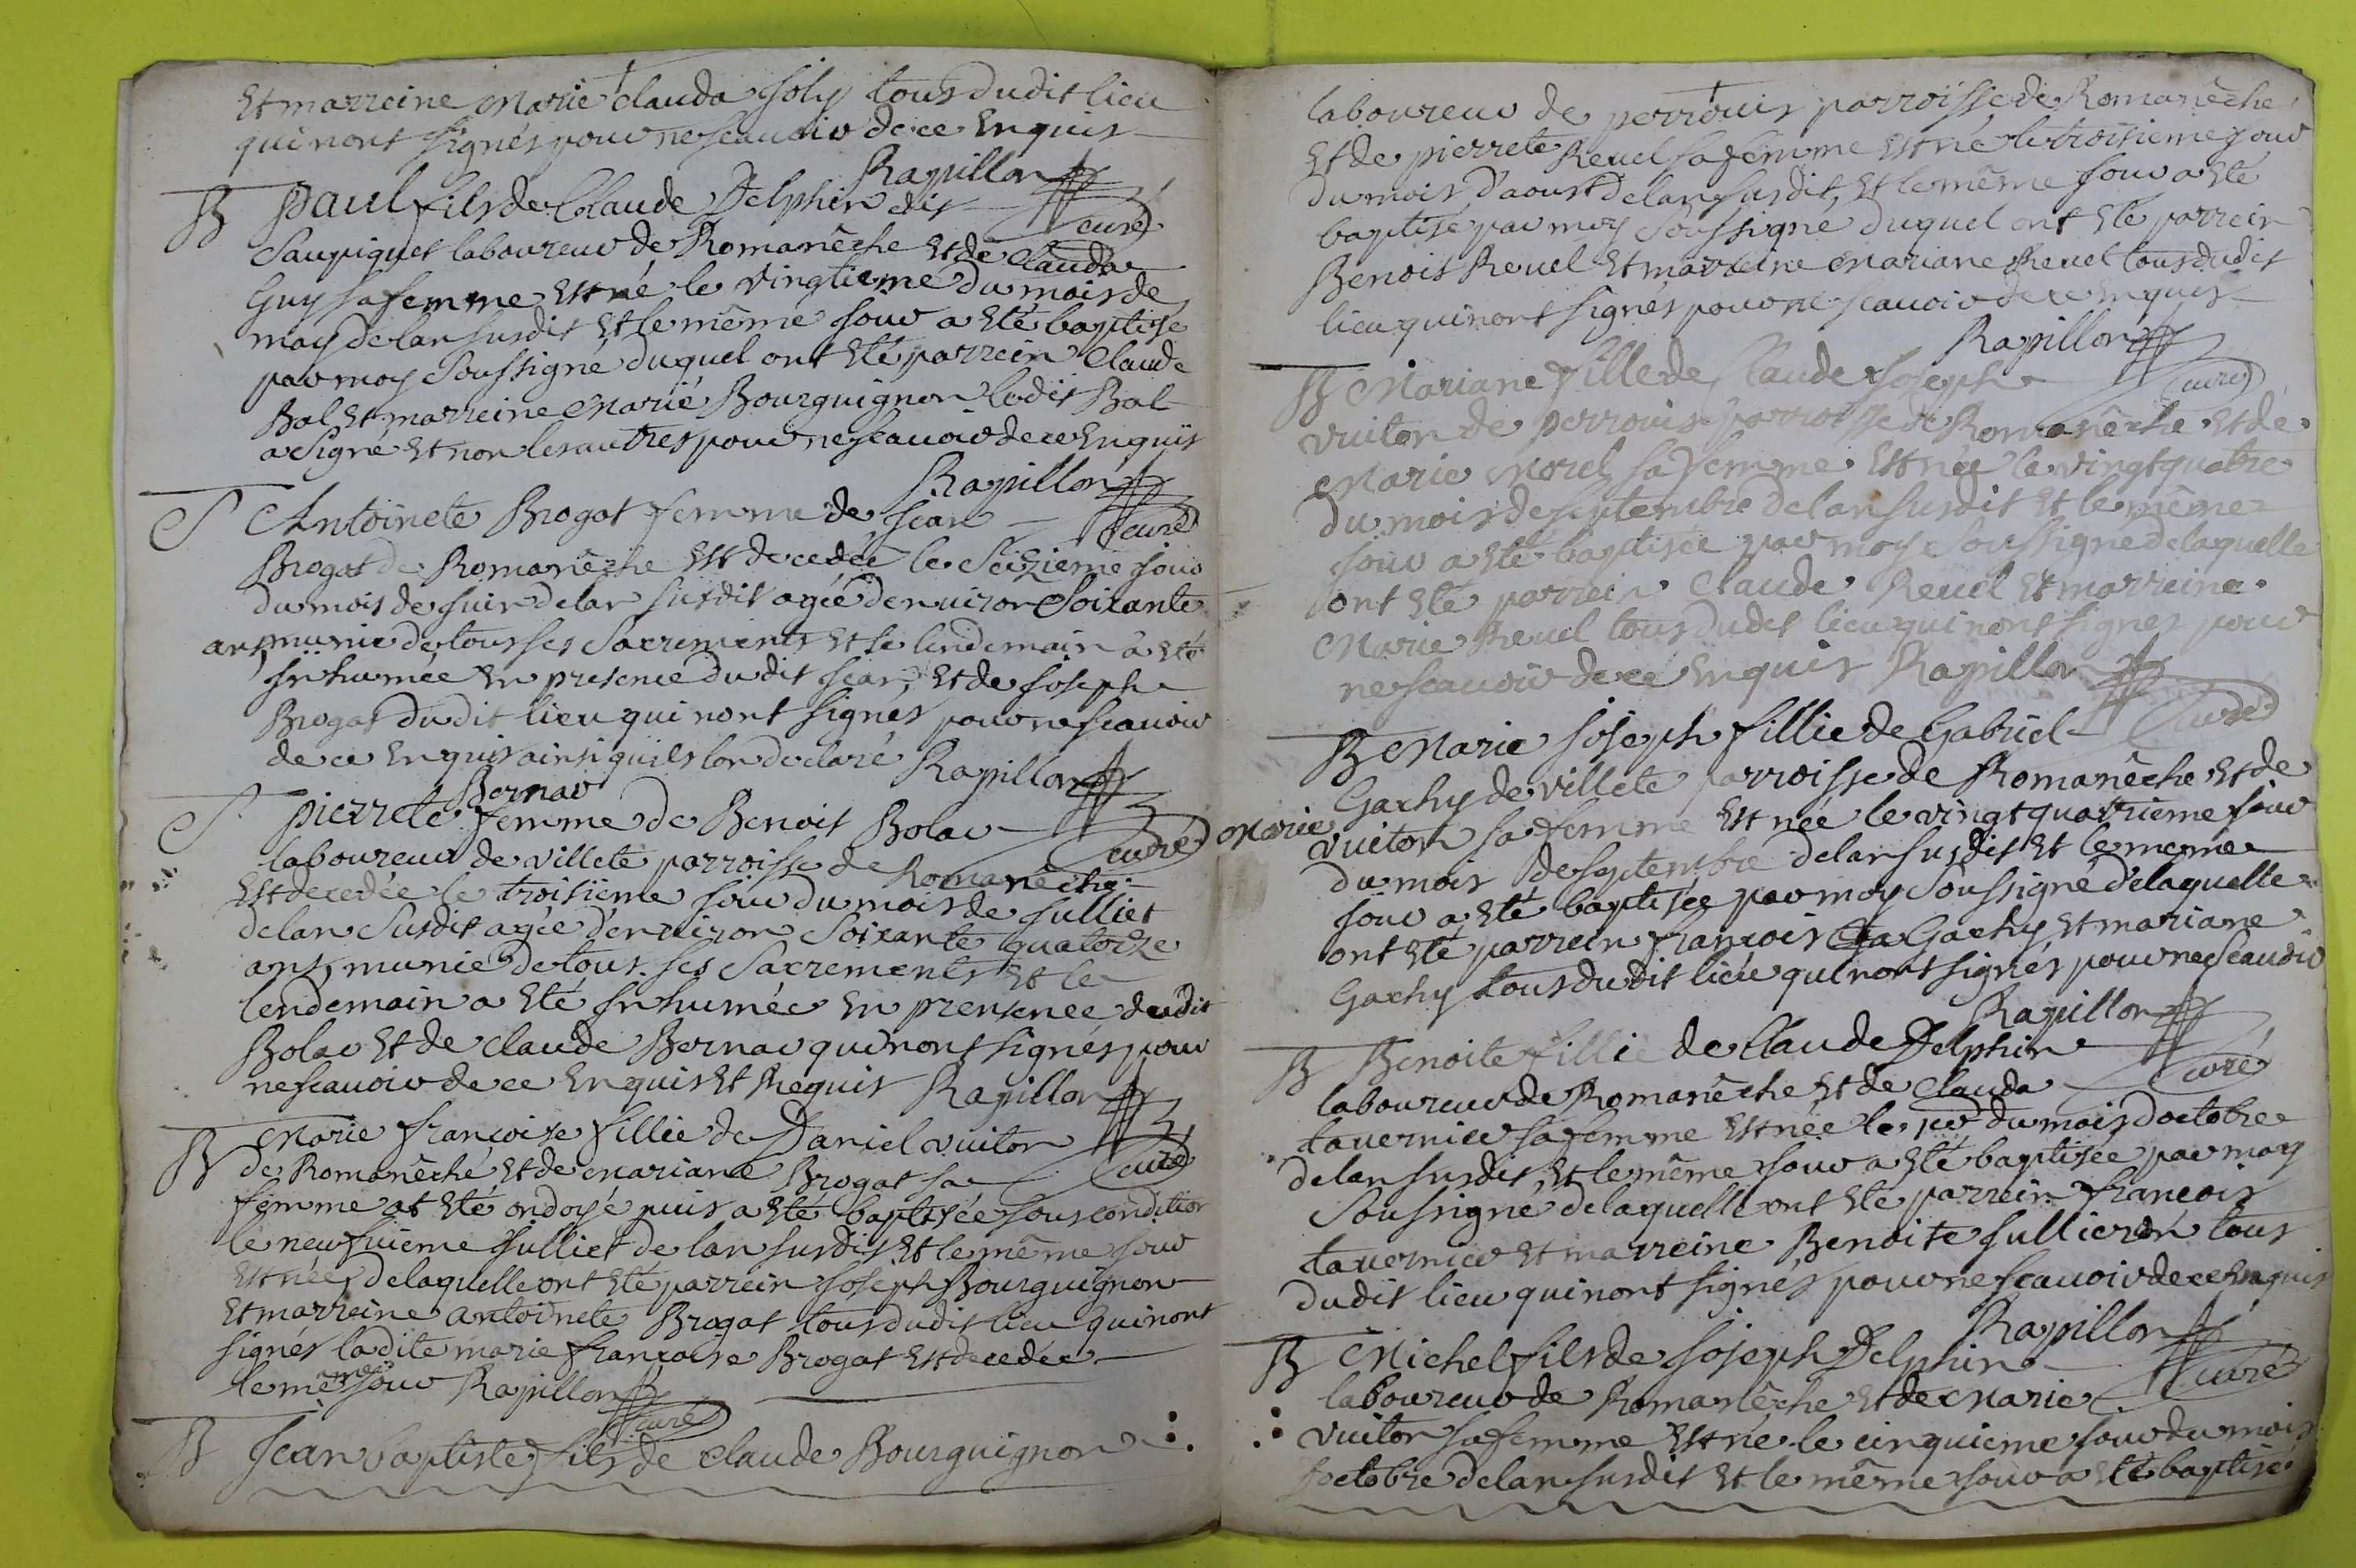 Et marreine Marie clauda Joly tous dudit lieu
qui nont signés pour ne scauoir de ce Enquis
Rapillon
curé
B Paul fils de Claude Delphin dit
Saupiquet laboureur de Romanêche et de Clauda
Guy sa femme est né le vingtieme du mois de
may de lan susdit et le même jour a été baptisé
par moy Soussigné duquel ont été parrein Claude
Bal et marreine Marie Bourguignon ledit Bal
a Signé et non les autres pour ne scauoir de ce Enquis
Rapillon
curé
S Antoinete Brogat femme de Jean
Brogat de Romanêche est decedée le Seizieme jour
du mois de Juin de lan susdit agée denuiron Soixante
ans munie de tous ses Sacrements et le lendemain a été
Inhumée en presence dudit Jean, et de Joseph
Brogat dudit lieu qui nont signés pour ne scauoir
de ce Enquis ainsi quils lon declaré Rapillon
curé
Bernar
S. pierrete femme de Benoit Bolar
laboureur de villete parroisse de Romanêche
est decedée le troisieme jour du mois de Julliet
de lan Susdit agée denuiron Soixante quatorze
ans, munie de tous ses Sacrements et le
lendemain a été Inhumée en presence dudit
Bolar et de claude Bernar qui nont signés pour
ne scauoir de ce Enquis et Requis Rapillon
curé
B Marie françoise fillie de Daniel vuiton
de Romanêche et de Mariane Brogat sa
femme at été ondoyé puis a été baptisée sous condition
le neufuieme Julliet de lan susdit, et le même jour
est née, de laquelle ont été parrein Joseph Bourguignon
et marreine antoinete Brogat tous dudit lieu qui nont
signés ladite marie francoise Brogat est decedée
le même jour Rapillon
curé
B Jean baptiste fils de claude Bourguignon
laboureur de perrouis parroisse de Romanêche
et de pierrete Reuel sa femme est né le troisieme jour
du mois d'aoust de lan susdit, et le même jour a été
baptisé par moy Soussigné duquel ont été parrein
Benoit Reuel et marreine Mariane Reuel tous dudit
lieu qui nont signés pour ne scauoir de ce Enquis
Rapillon
curé
B Mariane fille de Claude Joseph
vuiton de perrouis parroisse de Romanêche et de
Marie Morel sa femme est née le vingt quatre
du mois de septembre de lan susdit et le même
jour a été baptisée par moy Soussigné de laquelle
ont été parrein Claude Reuel et marreine
Marie Reuel tous dudit lieu qui nont signés pour
ne scauoir de ce Enquis Rapillon
curé
B Marie Joseph fillie de Gabriel
Gachy de villete parroisse de Romanêche et de
Marie vuiton sa femme est née le vingt quatrieme jour
du mois de septembre de lan susdit et le meme
jour a été baptisée par moy Soussigné de laquelle
ont été parrein françois Gachy et mariane
Gachy tous dudit lieu qui nont signés pour ne scauoir
Rapillon
curé
B Benoite fillie de Claude Delphin
laboureur de Romanêche et de Clauda
tauernier sa femme est née le pr du mois doctobre
de lan susdit, et le même jour a été baptisée par moy
Soussigné de laquelle ont été parrein françois
tauernier et marreine Benoite Jullieron tous
dudit lieu qui nont signés pour ne scauoir de ce Enquis
Rapillon
curé
B Michel fils de Joseph Delphin
laboureur de Romanêche et de Marie
vuiton sa femme est né le cinquieme jour du mois
doctobre de lan susdit et le même jour a été baptisé